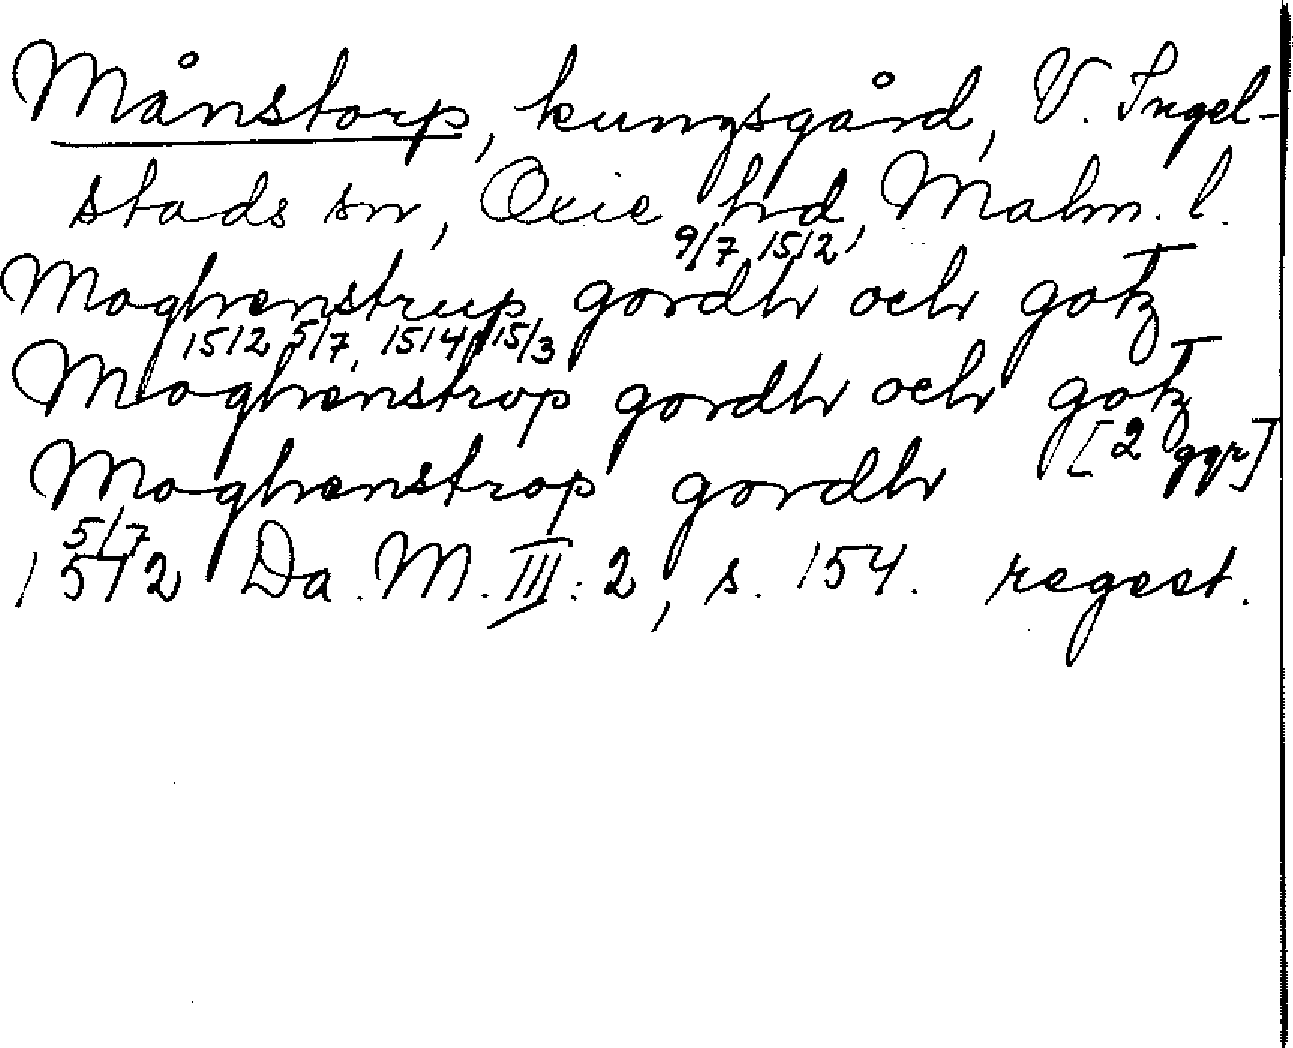 Månstorp, kungsgård, V. Ingel-
stads sn, Oxie hrd, Malm. l.
9/7 1512,
Moghenstrup gordh och gotz
1512 5/7, 1514 15/3
Moghenstrop gordh och gotz
[2 ggr]
Moghenstrop gordh
5/7
1512 Da. M. III:2, s. 154. regest.